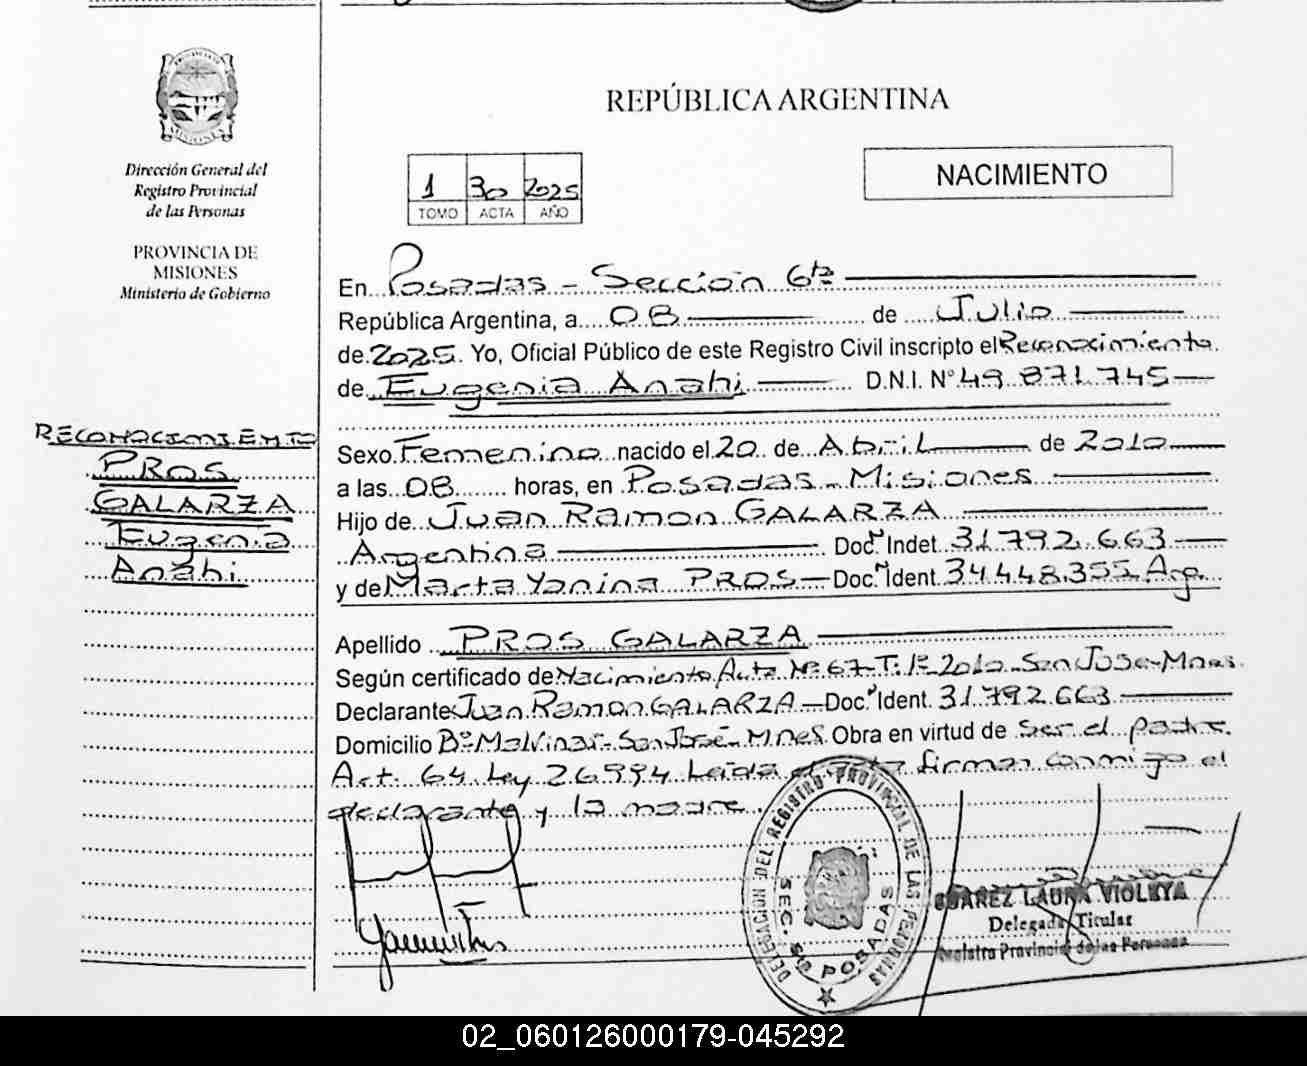 Dirección General del
Registro Provincial
de las Personas
PROVINCIA DE
MISIONES
Ministerio de Gobierno
REPÚBLICA ARGENTINA
1 30 2025
TOMO ACTA AÑO
NACIMIENTO
En Posadas - Sección 6ta
República Argentina, a 08 de Julio
de 2025. Yo, Oficial Público de este Registro Civil inscripto el Reconocimiento
de Eugenia Anahi D.N.I. N° 49.871.745
RECONOCIMIENTO
PROS
GALARZA
Eugenia
Anahi
Sexo Femenino nacido el 20 de Abril de 2010
a las 08 horas, en Posadas - Misiones
Hijo de Juan Ramon GALARZA
Argentina Doc. Indet. 31.792.663
y de Marta Yanina PROS - Doc. Ident. 34.448.355 Arg.
Apellido PROS GALARZA
Según certificado de Nacimiento Acta N° 67-T.1°-2010-San Jose-Mnes.
Declarante Juan Ramon GALARZA - Doc. Ident. 31.792.663
Domicilio B° Malvinas - San José - Mnes. Obra en virtud de ser el padre.
Art. 64 Ley 26994 Leída el firman conmigo el
declarante y la madre.
DELEGACION DEL REGISTRO PROVINCIAL DE LAS PERSONAS
SEC. 6ta POSADAS
SUAREZ LAURA VIOLETA
Delegada Titular
Registro Provincial de las Personas
02_060126000179-045292